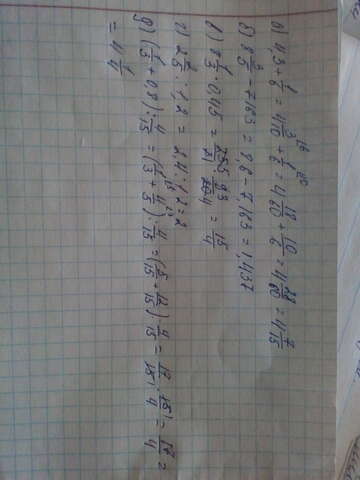 а) 4,3 + 1/6 = 4 3/10 + 1/6 = 4 18/60 + 10/60 = 4 28/60 = 4 7/15
б) 8 3/5 - 7,163 = 8,6 - 7,163 = 1,437
в) 8 1/3 · 0,45 = 25/3 · 45/100 = 15/4
г) 2 2/5 : 1,2 = 2,4 : 1,2 = 2
д) (1/3 + 0,8) : 4/15 = (1/3 + 4/5) : 4/15 = (5/15 + 12/15) : 4/15 = 17/15 · 15/4 = 17/4 =
= 4 1/4